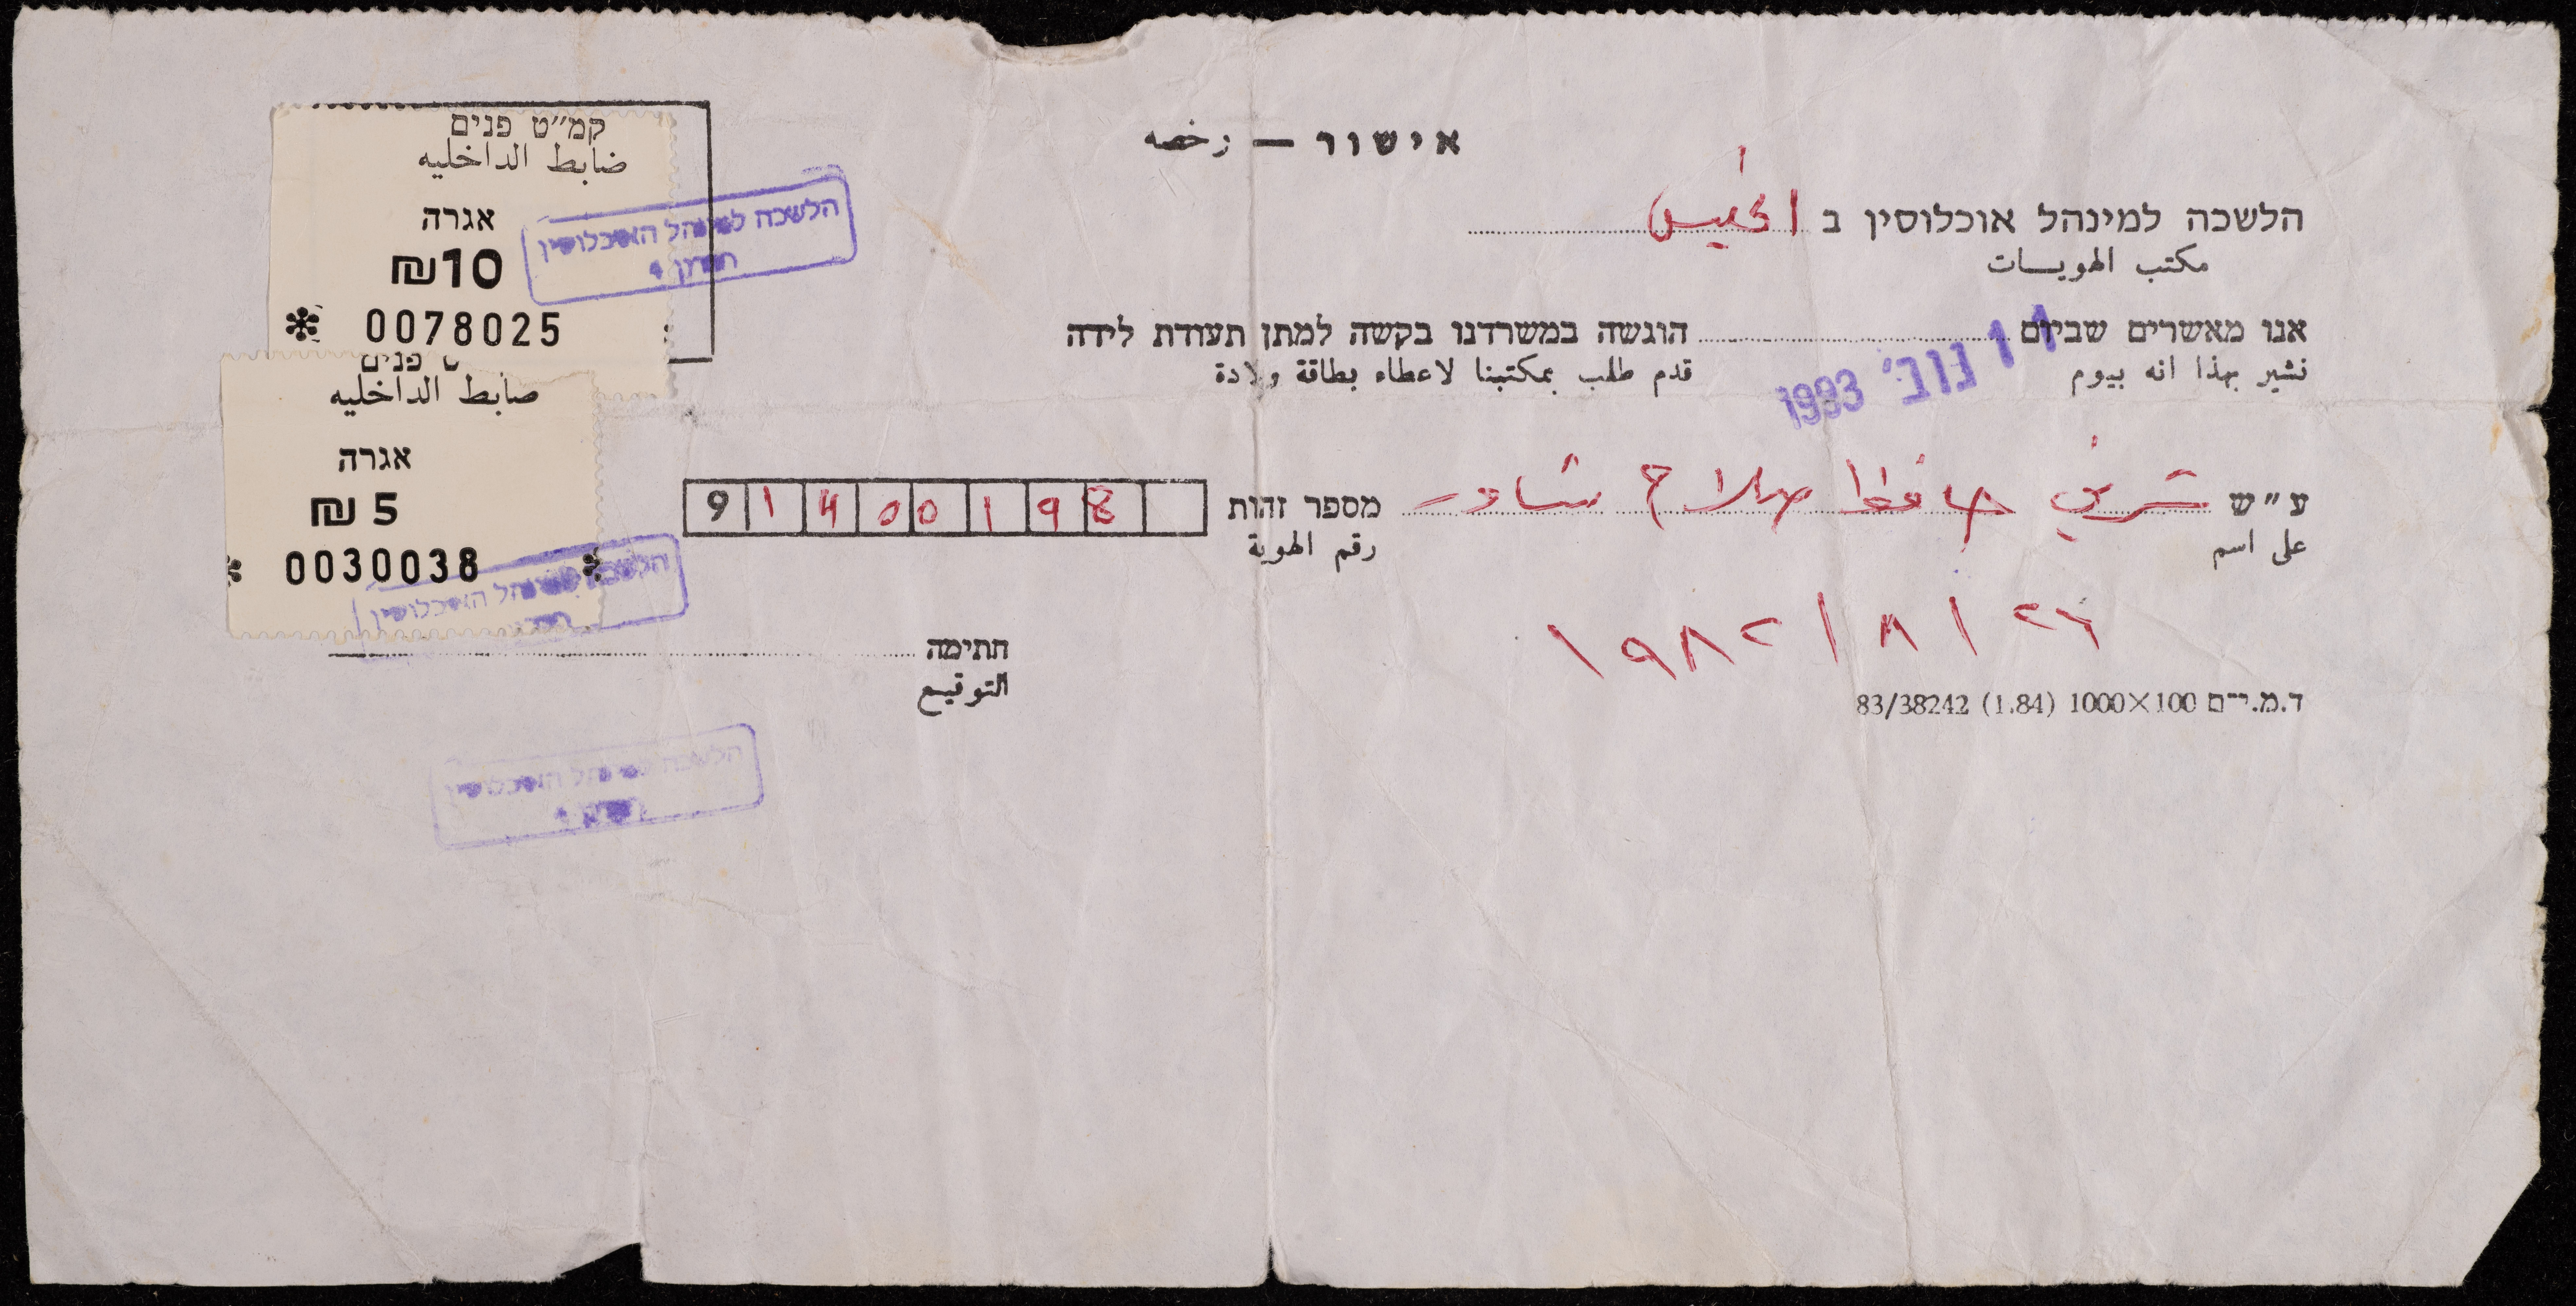 אישור — رخصه
הלשכה למינהל אוכלוסין ב
مكتب الهويات
אנו מאשרים שביום 11 נוב׳ 1993 הוגשה במשרדנו בקשה למתן תעודת לידה
نشير بهذا انه بيوم قدم طلب بمكتبنا لاعطاء بطاقة ولادة
ע״ש حافظ صلاح מספר זהות 91400198
على اسم رقم الهوية
٢٦/٨/١٩٨٢
חתימה
التوقيع
ד.מ.י־ם 100×1000 (1.84) 83/38242
קמ״ט פנים
ضابط الداخليه
אגרה
₪10
* 0078025
הלשכה למינהל האוכלוסין
פנים
ضابط الداخليه
אגרה
₪ 5
* 0030038 *
הלשכה למינהל האוכלוסין
הלשכה למינהל האוכלוסין